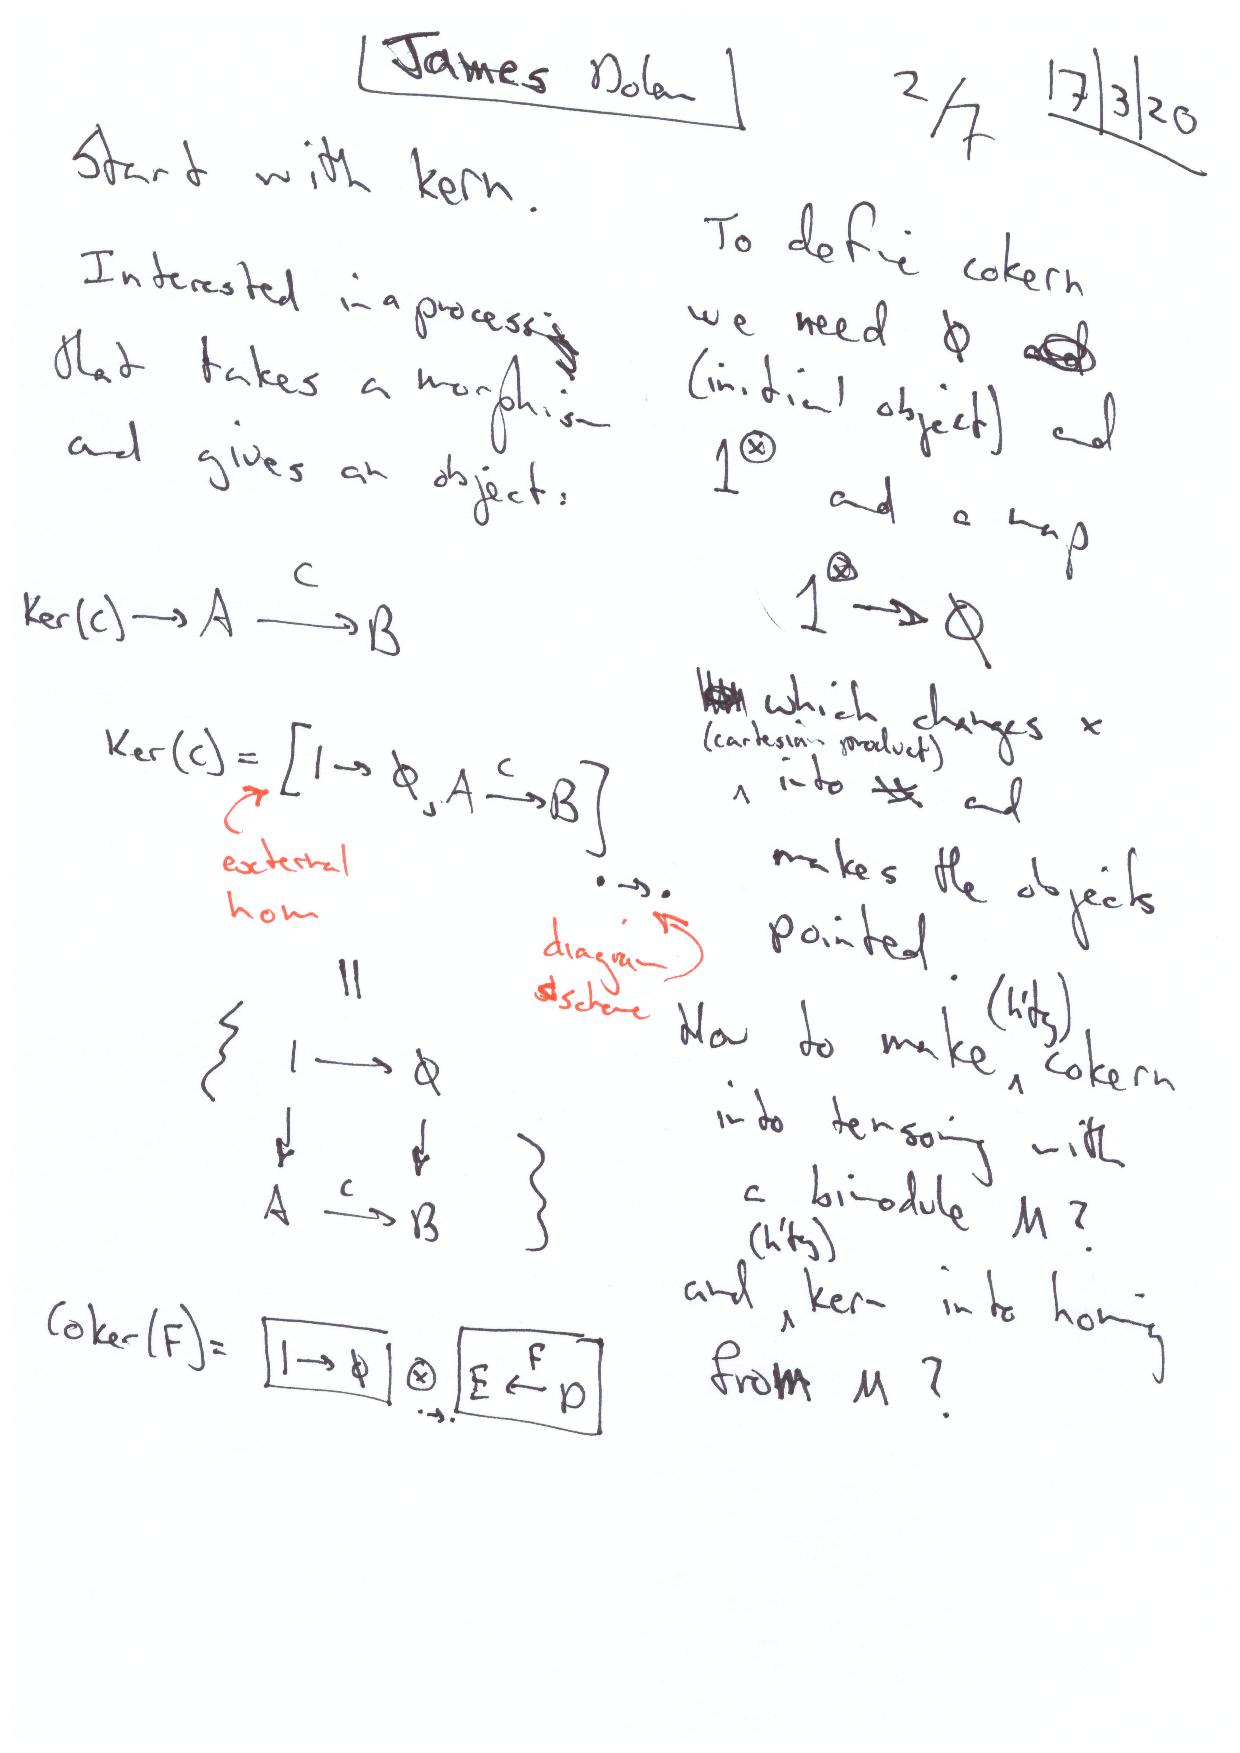 James Dolan
2/7
17/3/20
Start with kern.
Interested in a process
that takes a morphism
and gives an object:
Ker(c) → A →^c B
Ker(c) = [1 → φ, A →^c B]
external
hom
· → ·
diagram
scheme
||
{ 1 → φ
↓ ↓
A →^c B }
Coker(F) = [1 → φ] ⊗ [E ←^F D]
· → ·
To defie cokern
we need φ
(initial object) and
1^⊗
and a map
1^⊗ → φ
which changes ×
(cartesian product)
^ into and
makes the objects
pointed.
(h'ty)
How to make ^ cokern
into tensoing with
a bimodule M?
(h'ty)
and ^ kern into homing
from M?